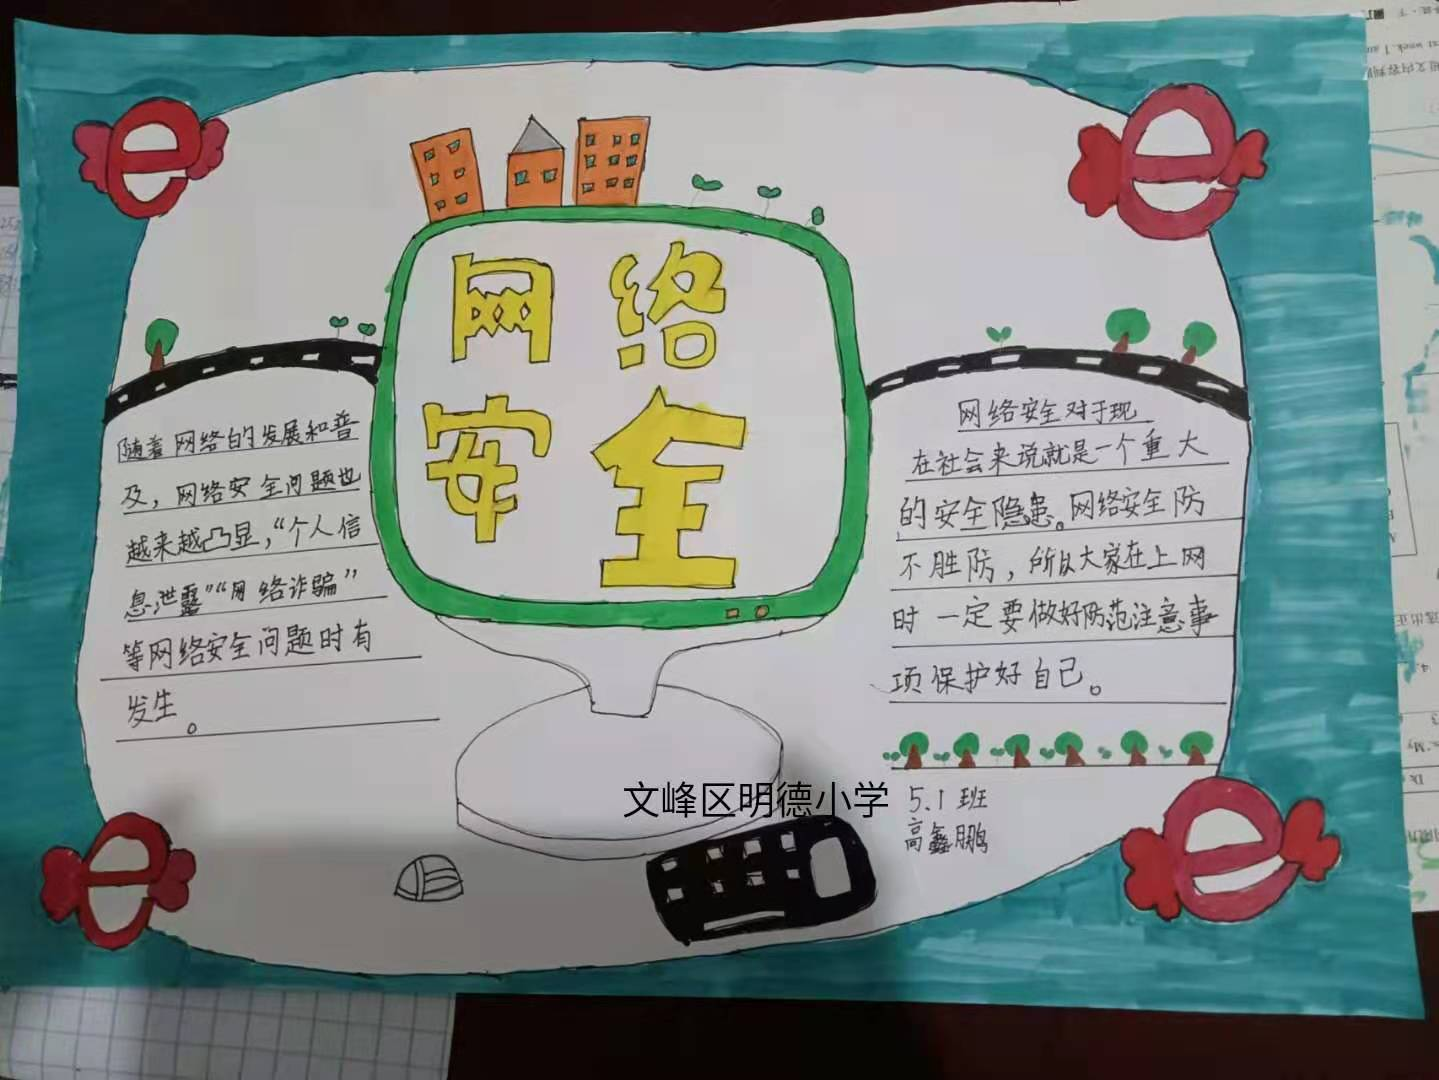 网络
安全
随着网络的发展和普
及，网络安全问题也
越来越凸显，“个人信
息泄露”“网络诈骗”
等网络安全问题时有
发生。
网络安全对于现
在社会来说就是一个重大
的安全隐患。网络安全防
不胜防，所以大家在上网
时一定要做好防范注意事
项保护好自己。
文峰区明德小学
5.1班
高鑫鹏
e
e
e
e